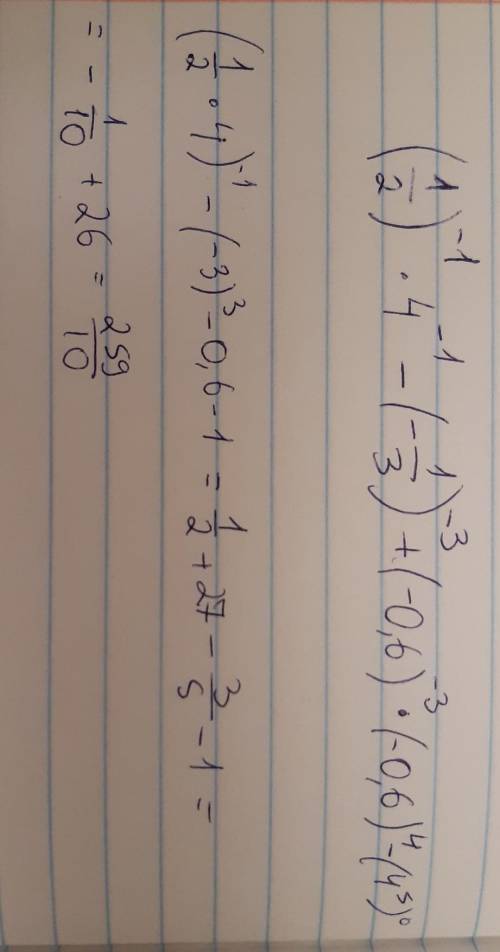 (1/2)⁻¹ · 4⁻¹ - (-1/3)⁻³ + (-0,6)⁻³ · (-0,6)⁴ - (4⁵)⁰
(1/2 · 4)⁻¹ - (-3)³ - 0,6 - 1 = 1/2 + 27 - 3/5 - 1 =
= - 1/10 + 26 = 259/10